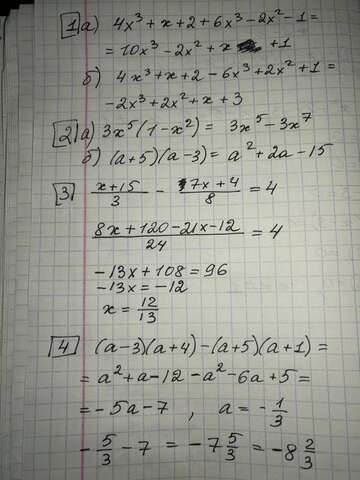 1 а) 4x³ + x + 2 + 6x³ - 2x² - 1 =
= 10x³ - 2x² + x + 1
б) 4x³ + x + 2 - 6x³ + 2x² + 1 =
-2x³ + 2x² + x + 3
2 а) 3x⁵(1 - x²) = 3x⁵ - 3x⁷
б) (a+5)(a-3) = a² + 2a - 15
3 (x+15)/3 - (7x+4)/8 = 4
(8x + 120 - 21x - 12)/24 = 4
-13x + 108 = 96
-13x = -12
x = 12/13
4 (a-3)(a+4) - (a+5)(a+1) =
= a² + a - 12 - a² - 6a + 5 =
= -5a - 7 , a = -1/3
-5/3 - 7 = -7 5/3 = -8 2/3